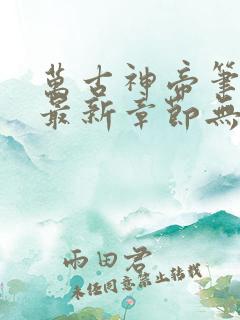 萬古神帝筆
最新章節無
雨田君
未經同意禁止轉載